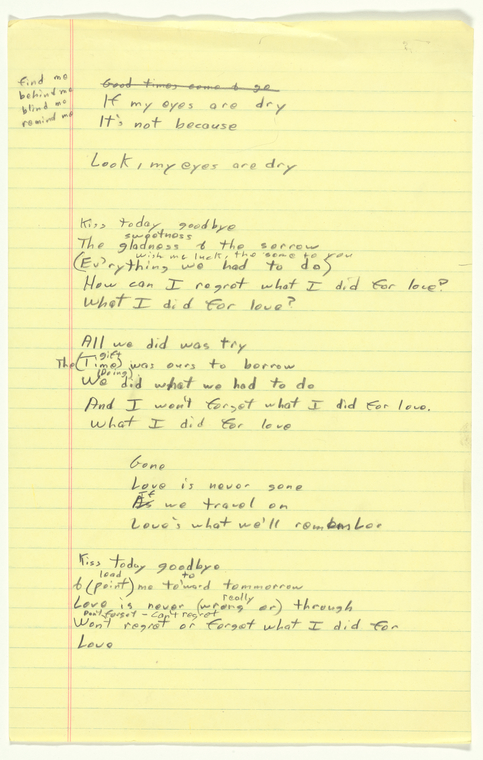 find me
behind me
blind me
remind me
Good times come & go
If my eyes are dry
It's not because
Look, my eyes are dry
Kiss today goodbye
sweetness
The gladness & the sorrow
wish me luck, the same to you
(Ev'rything we had to do)
How can I regret what I did for love?
What I did for love?
All we did was try
gift
The (Time) was ours to borrow
(Doing)
We did what we had to do
And I won't forget what I did for love.
What I did for love
Gone
Love is never gone
If
As we travel on
Love's what we'll remember
Kiss today goodbye
lead to
& (point) me toward tommorrow
really
Love is never (wrong or) through
Don't forget - can't regret
Won't regret or forget what I did for
Love